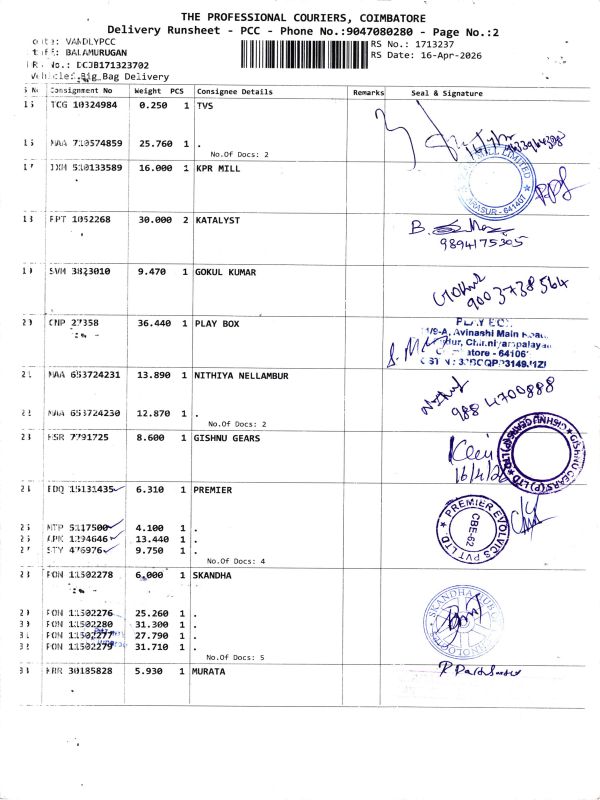 THE PROFESSIONAL COURIERS, COIMBATORE
Delivery Runsheet - PCC - Phone No.:9047080280 - Page No.:2
VANDLYPCC
BALAMURUGAN
No.: DCJB171323702
Vehicle: Big Bag Delivery
RS No.: 1713237
RS Date: 16-Apr-2026
Consignment No Weight PCS Consignee Details Remarks Seal & Signature
TCG 10324984 0.250 1 TVS
16 MAA 710574859 25.760 1 .
No.Of Docs: 2
17 IXM 510133589 16.000 1 KPR MILL
MILL LIMITED
ARASUR - 641407
18 PPT 1052268 30.000 2 KATALYST
B.
9894175305
19 SVM 3823010 9.470 1 GOKUL KUMAR
Gokul
9003738564
20 CNP 27358 36.440 1 PLAY BOX
Avinashi Main Road,
21 MAA 653724231 13.890 1 NITHIYA NELLAMBUR
9884700888
22 MAA 653724230 12.870 1 .
No.Of Docs: 2
23 HSR 7791725 8.600 1 GISHNU GEARS
GISHNU GEARS (P) LTD
24 EDQ 15131435 6.310 1 PREMIER
PREMIER EVOLVICS PVT LTD.
CBE-62
25 MTP 5117500 4.100 1 .
26 APK 1394646 13.440 1 .
27 STY 476976 9.750 1 .
No.Of Docs: 4
28 PON 11502278 6.000 1 SKANDHA
29 PON 11502276 25.260 1 .
30 PON 11502280 31.300 1 .
31 PON 11502277 27.790 1 .
32 PON 11502279 31.710 1 .
No.Of Docs: 5
SKANDHA
KRR 30185828 5.930 1 MURATA